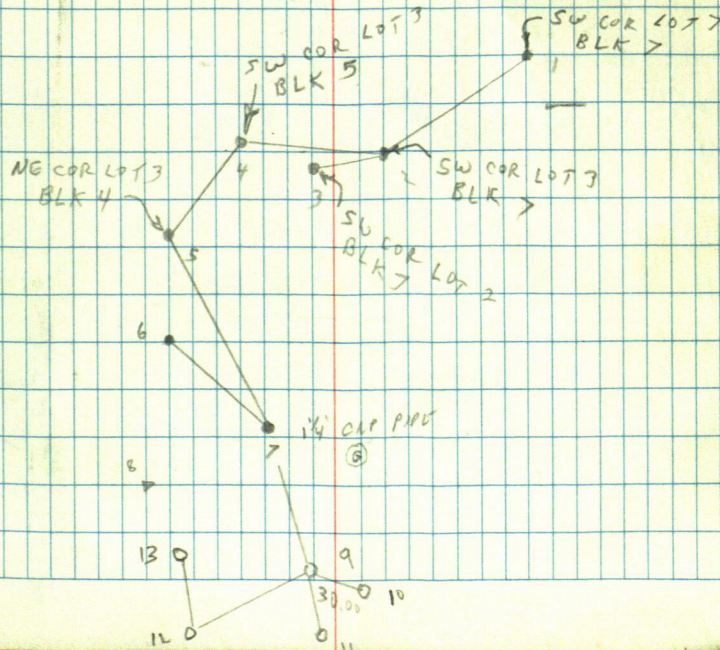 SW COR LOT 7
BLK 7
1
SW COR LOT 3
BLK 5
4
3
2
SW COR LOT 3
BLK 7
NE COR LOT 3
BLK 4
SW COR LOT 2
BLK 7
5
6
7
1 1/4 CAP PIPE
G
8
13
9
30.00
10
12
11